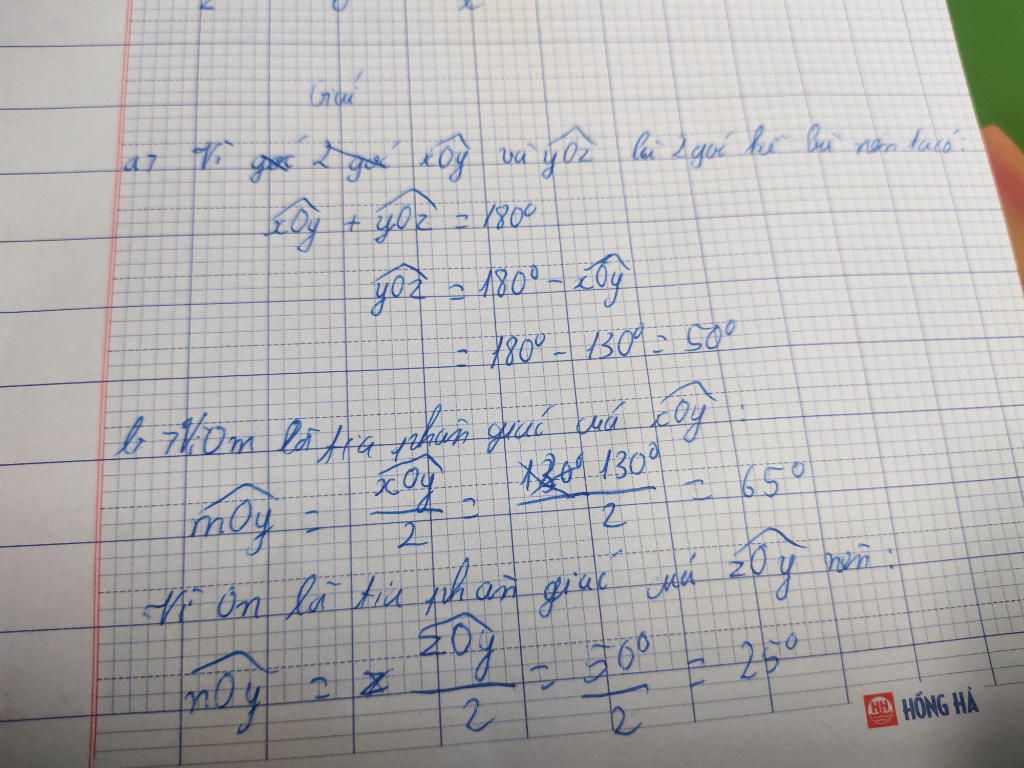 Giải
a, Vì góc 2 góc xOy và yOz là 2 góc kề bù nên ta có:
xOy + yOz = 180°
yOz = 180° - xOy
= 180° - 130° = 50°
b, Vì Om là tia phân giác của xOy :
mOy = xOy/2 = 130°/2 = 65°
Vì On là tia phân giác của zOy nên :
nOy = zOy/2 = 50°/2 = 25°
HH HỒNG HÀ